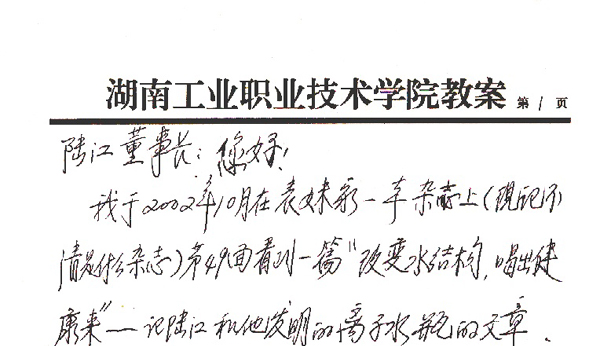 湖南工业职业技术学院教案 第 1 页
陆江董事长：您好！
我于2002年10月在表妹家一本杂志上（现记不
清是什么杂志）第49面看到一篇“改变水结构，喝出健
康来”— 记陆江和他发明的离子水瓶的文章．